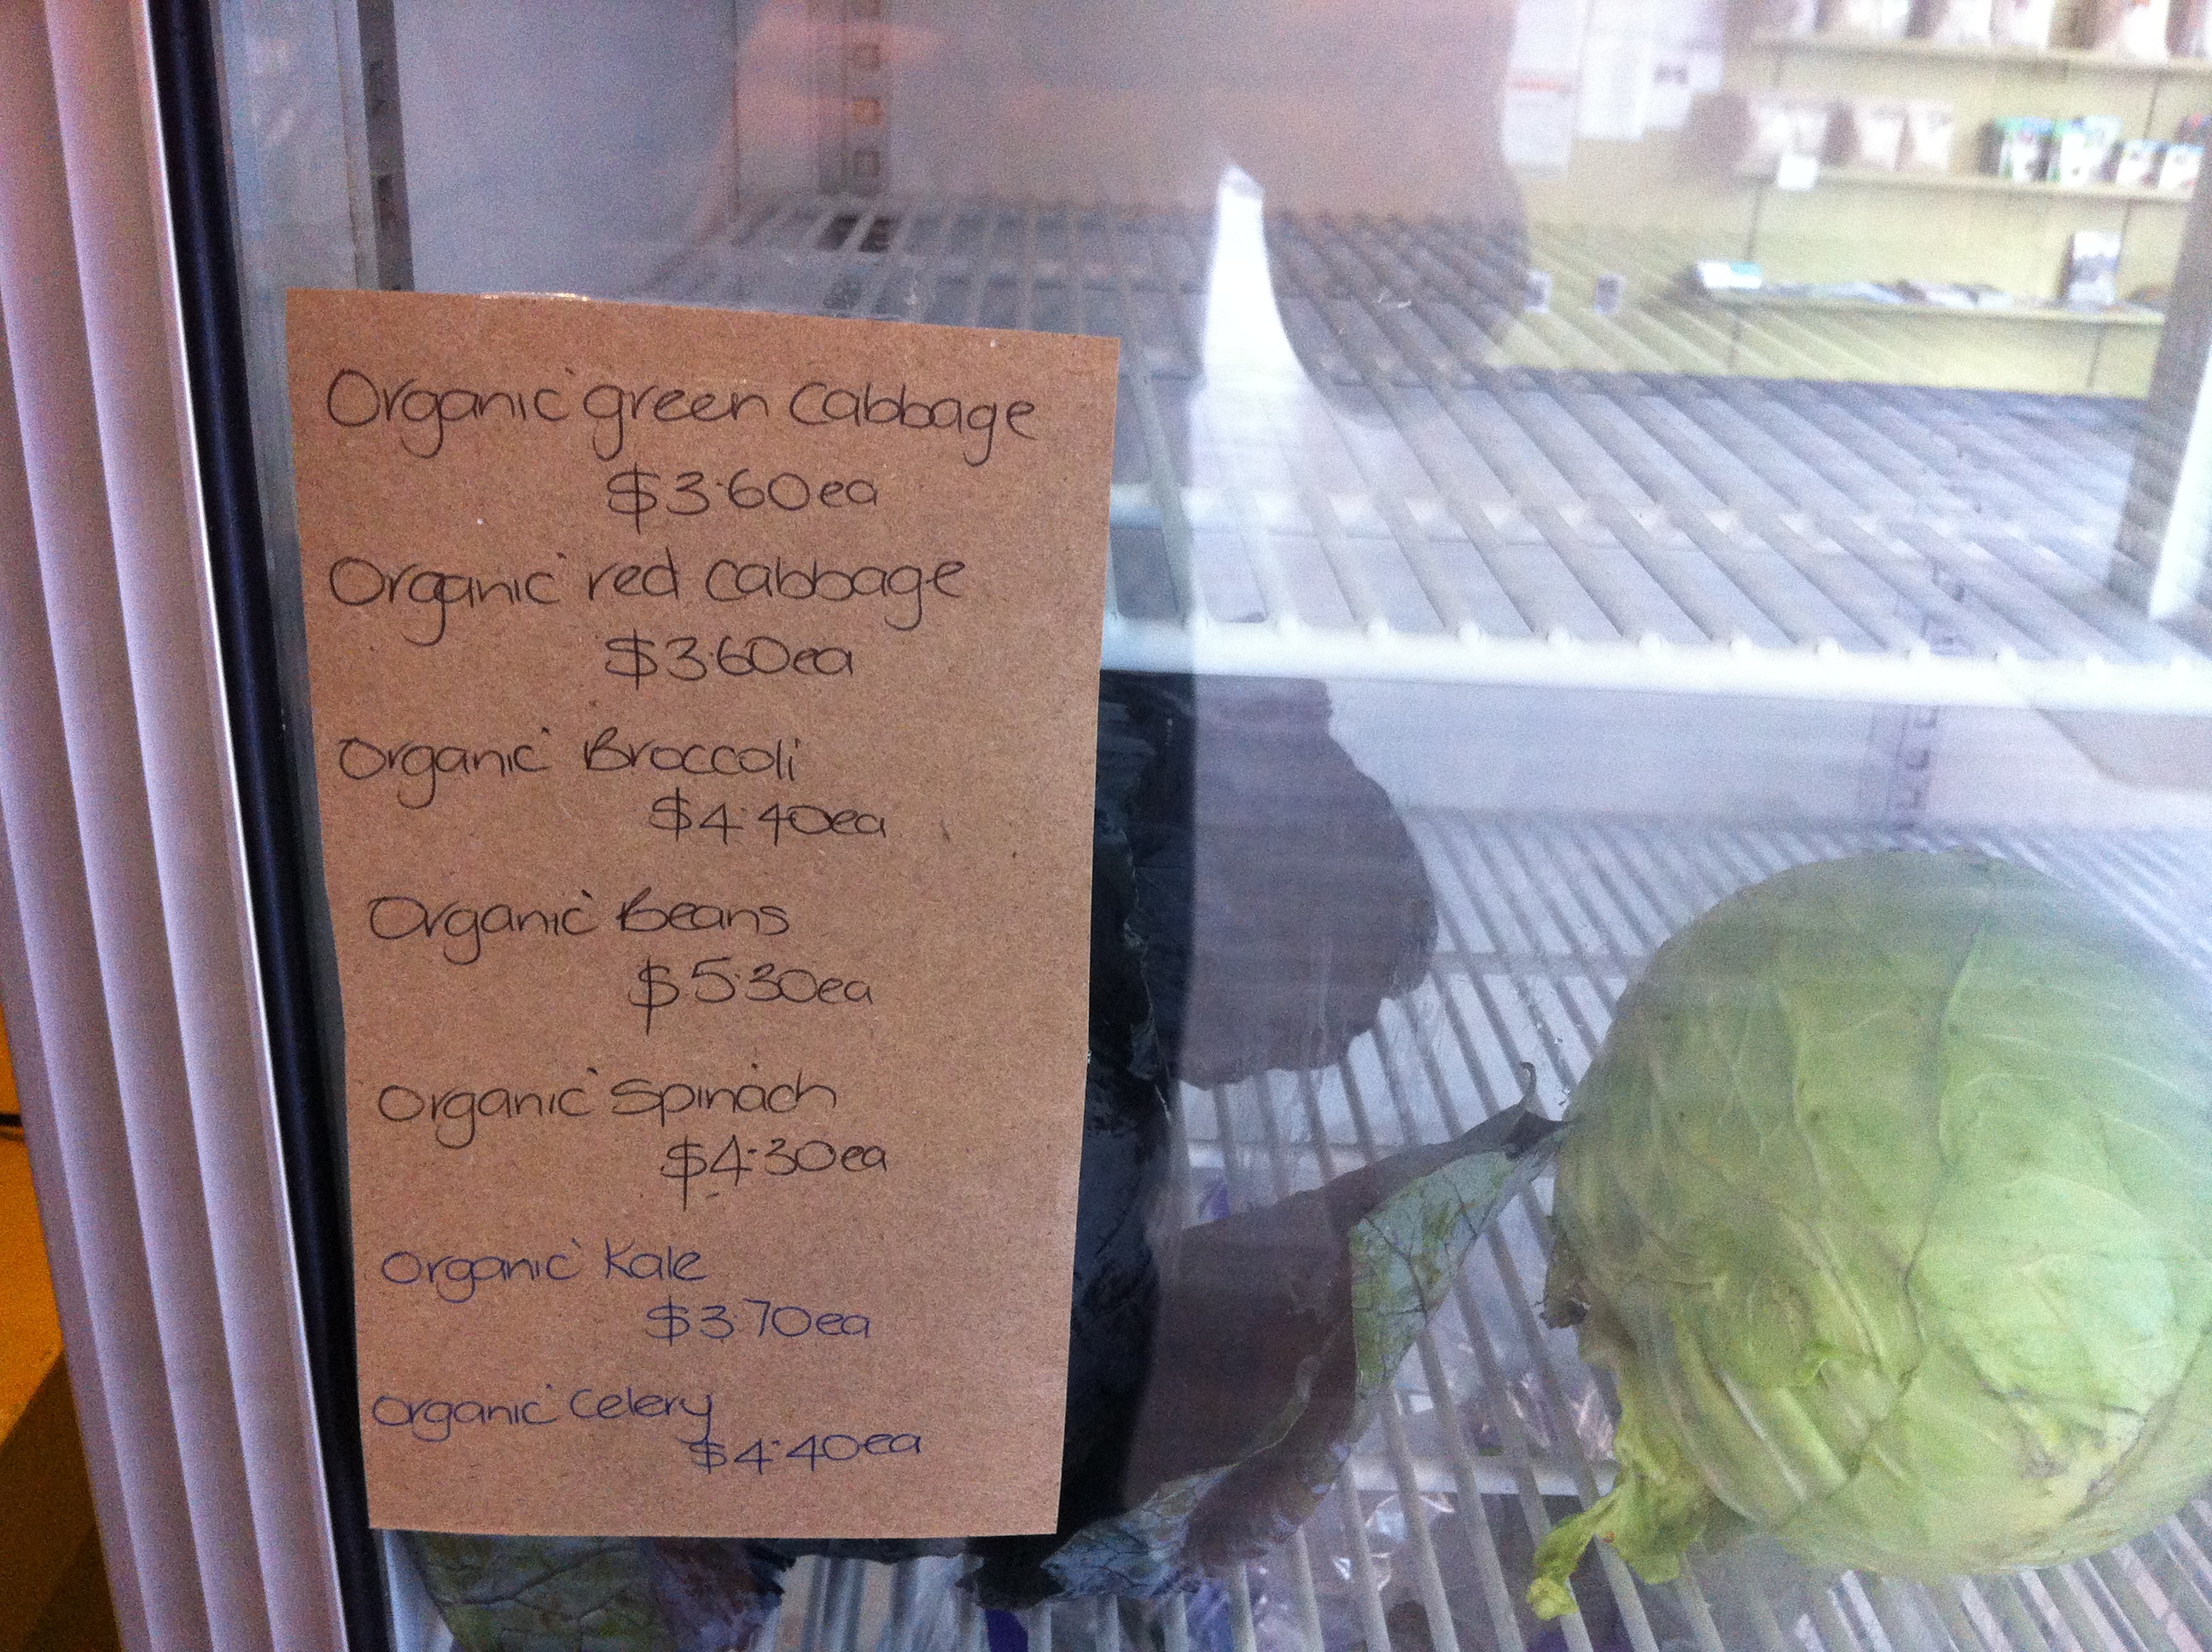 Organic green cabbage
$3.60ea
Organic red cabbage
$3.60ea
Organic Broccoli
$4.40ea
Organic Beans
$5.30ea
Organic Spinach
$4.30ea
Organic Kale
$3.70ea
Organic Celery
$4.40ea